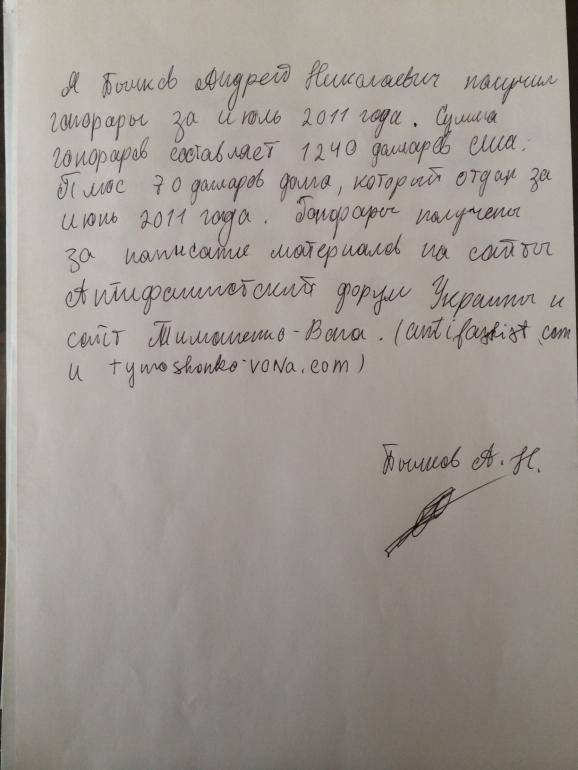 Я Бычков Андрей Николаевич получил
гонорары за июль 2011 года. Сумма
гонораров составляет 1240 долларов США.
Плюс 70 долларов долга, который отдан за
июнь 2011 года. Гонорары получены
за написание материалов на сайты
Антифашистский форум Украины и
сайт Тимошенко-Вона. (antifashist.com
и tymoshenko-vona.com)
Бычков А. Н.